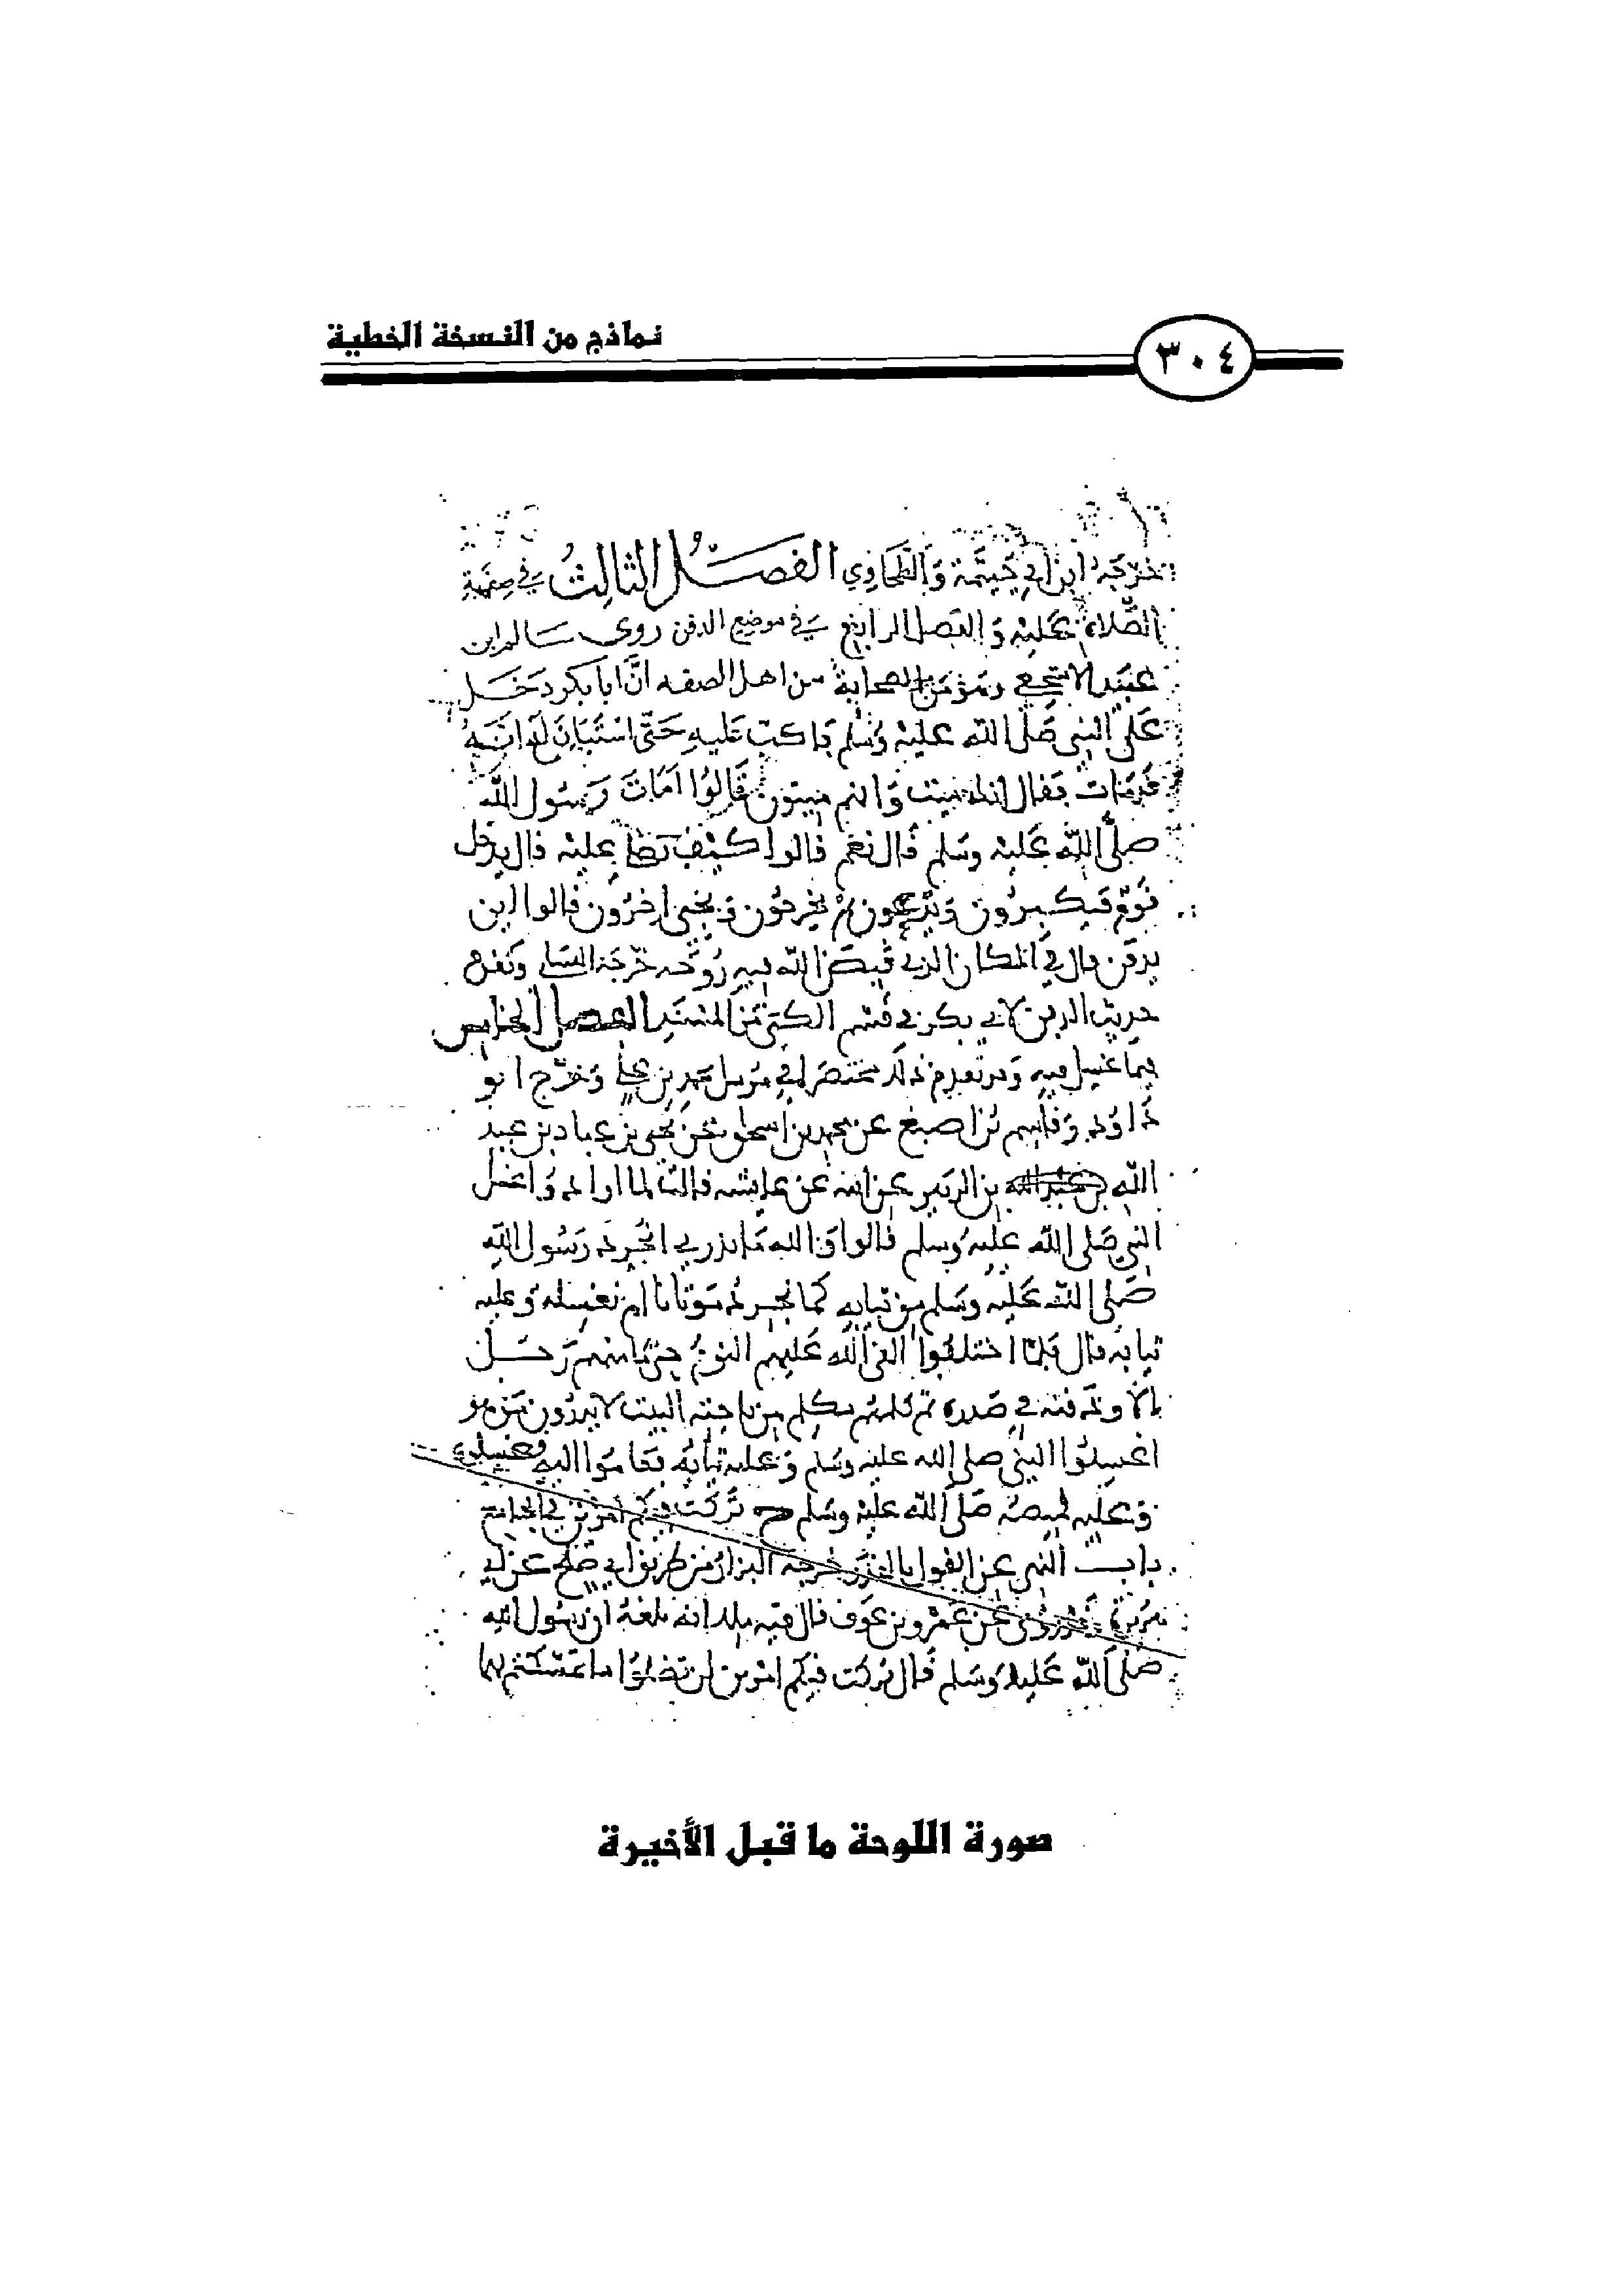 نماذج من النسخة الخطية
٣٠٤
خرّجه ابن ابي خيثمة والطحاوي الفصل الثالث في صفة
الصلاة عليه والفصل الرابع في موضع الدفن روى سالم ابن
عبيد الاشجعي وهو من الصحابة من اهل الصفه انّ ابا بكر دخل
على النبي صلى الله عليه وسلم فاكب عليه حتى استبان له انه
قد مات فقال انك ميت وانهم ميتون قالوا امات رسول الله
صلى الله عليه وسلم قال نعم قالوا كيف نصلي عليه قال يدخل
قوم فيكبرون ويدعون ثم يخرجون ويجي اخرون قالوا اين
يدفن قال في المكان الذي قبض الله فيه روحه خرجه النساي وتقدم
حديث الدفن لابي بكر في قسم الكنى من المسند الفصل الخامس
فيما غسل فيه وقد تقدم ذلك مختصرا في مرسل محمد بن علي وخرّج ابو
داود وقاسم بن اصبغ عن محمد بن اسحاق عن يحيى بن عباد بن عبد
الله بن الزبير عن ابيه عن عايشه قالت لما ارادوا غسل
النبي صلى الله عليه وسلم قالوا والله ما ندري انجرد رسول الله
صلى الله عليه وسلم من ثيابه كما نجرد موتانا ام نغسله وعليه
ثيابه قال فلما اختلفوا القى الله عليهم النوم حتى ما منهم رجل
الا وذقنه في صدره ثم كلمهم مكلم من ناحية البيت لا يدرون من هو
اغسلوا النبي صلى الله عليه وسلم وعليه ثيابه فقاموا اليه فغسلوه
وعليه قميصه صلى الله عليه وسلم تركت فيكم امرين في الجامع
باب النهي عن القول بالقدر خرجه البزار من طريق ابي صلح عن ابي
هريرة وروي عن عمرو بن عوف قال فيه ملك انه بلغه ان رسول الله
صلى الله عليه وسلم قال تركت فيكم امرين لن تضلوا ما تمسكتم بهما
صورة اللوحة ما قبل الأخيرة